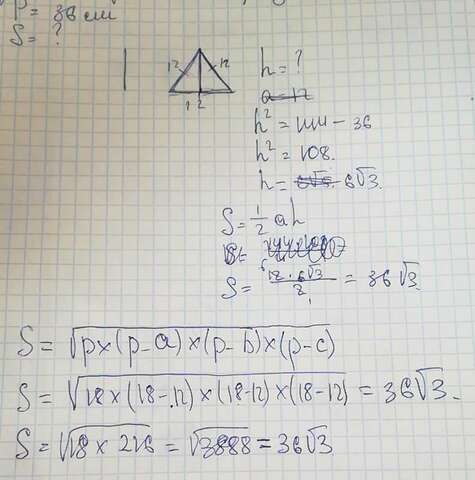 P = 36 см
S = ?
12 12
12
h = ?
a = 12
h² = 144 - 36
h² = 108.
h = 6√3.
S = 1/2 ah
S = 12 · 6√3 / 2 = 36√3
S = √p×(p-a)×(p-b)×(p-c)
S = √18×(18-12)×(18-12)×(18-12) = 36√3.
S = √18 × 216 = √3888 = 36√3